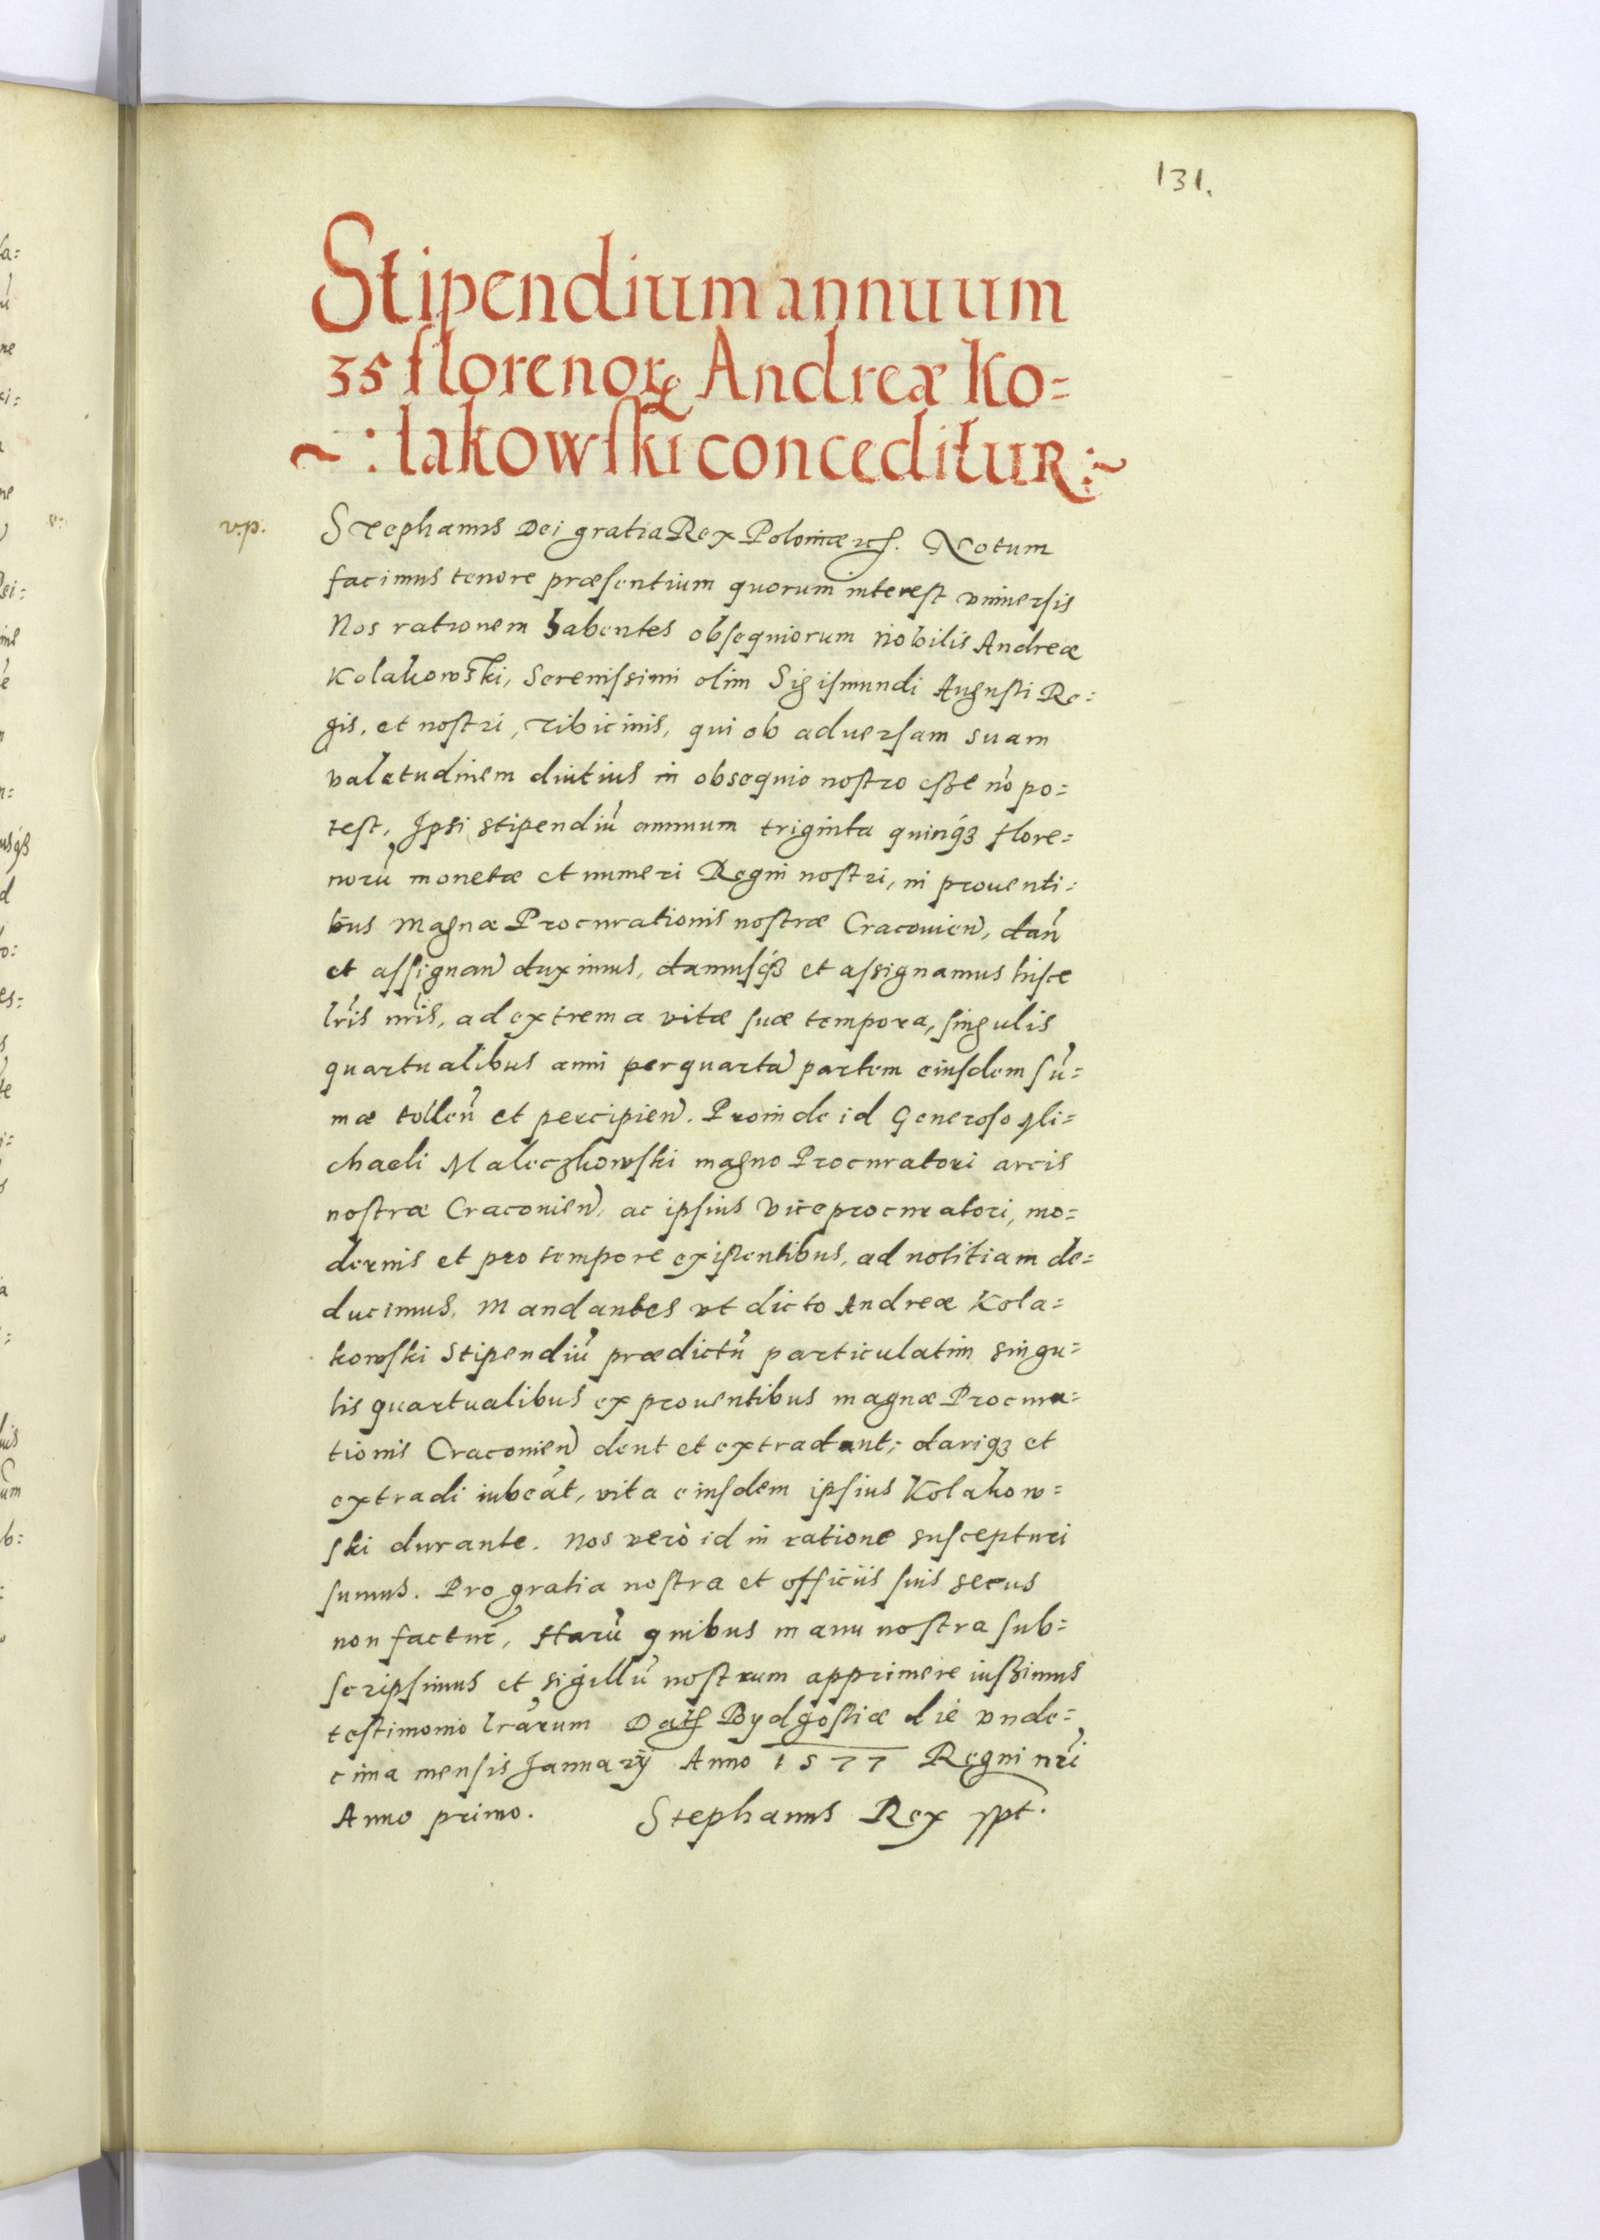 131.
Stipendium annuum
35 florenorꝝ Andreæ Ko=
~ : lakowſki conceditur :~
v.p.
Stephanus Dei gratia Rex Poloniæ etc. Notum
facimus tenore præſentium quorum intereſt vniuerſis
Nos rationem habentes obſequiorum nobilis Andreæ
Kolakowſki, Sereniſsimi olim Sigiſmundi Auguſti Re=
gis, et noſtri, tibicinis, qui ob aduerſam suam
valetudinem diutius in obsequio noſtro eſße nõ po=
test, Ipsi stipendiũ annuum triginta quinq́ꝫ flore=
norũ monetæ et numeri Regni noſtri, in prouenti=
bus Magnæ Procurationis noſtræ Cracouien̄, dan̄
et aſſignan̄ duximus, damuſq́ꝫ et aſsignamus hiſce
lr̃is nr̃is, ad extrema vitæ ſuæ tempora, ſingulis
quartualibus anni per quartã partem eiuſdem ſũ=
mæ tollen̄ et percipien̄. Proinde id Generoſo Mi=
chaeli Maleczkowſki magno Procuratori arcis
noſtræ Cracouien̄, ac ipſius Viceprocuratori, mo=
dernis et pro tempore exiſtentibus, ad notitiam de=
ducimus, Mandantes vt dicto Andreæ Kola=
kowſki Stipendiũ prædictũ particulatim singu=
lis quartualibus ex prouentibus magnæ Procura=
tionis Cracouien̄ dent et extradant; dariqꝫ et
extradi iubeãt, vita eiuſdem ipſius Kolakow=
ſki durante. Nos verò id in ratione suſcepturi
ſumus. Pro gratia noſtra et officiis ſuis secus
non facturĩ, Harũ quibus manu noſtra ſub=
ſcripſimus et sigillũ noſtrum apprimere iuſßimus
teſtimonio lr̃arum Datꝭ Bydgoſtiæ die vnde=
cima menſis Januarij Anno 1577 Regni nr̃i
Anno primo. Stephanus Rex ſſpt.